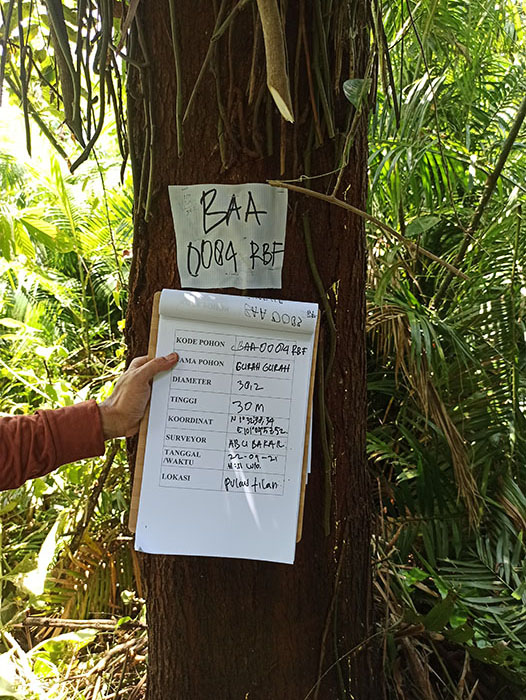 BAA
0084 RBF
KODE POHON BAA 0084 RBF
NAMA POHON GURAH GURAH
DIAMETER 30,2
TINGGI 30 M
KOORDINAT
SURVEYOR ABU BAKAR
TANGGAL 22-09-21
/WAKTU
LOKASI pulau tilan